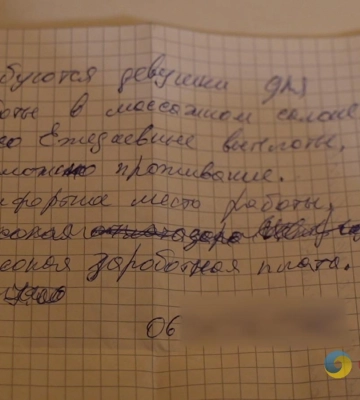 буются девушки для
боты в массажном салоне
Ежедневные выплаты,
можно проживание.
место работы,
сокая
сокая заработная плата.
06